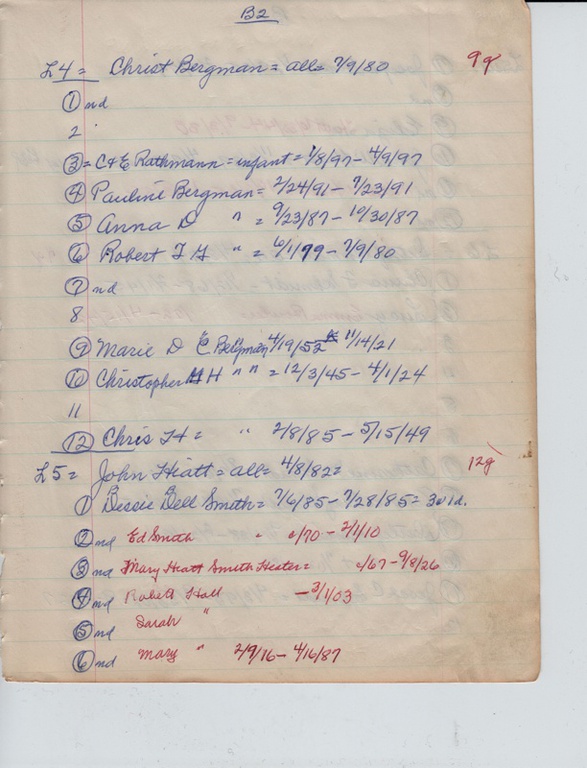 B2
L4 = Christ Bergman = all = 7/9/80 9g
① nd
2
③ = C & E Rathmann = infant = 1/8/97 - 4/9/97
④ Pauline Bergman = 2/24/91 - 7/23/91
⑤ Anna D " = 9/23/87 - 10/30/87
⑥ Robert F G " = 6/1/79 - 7/9/80
⑦ nd
8
⑨ Marie D E Bergman 4/19/52 - 11/14/21
⑩ Christopher H " " = 12/3/45 - 4/1/24
11
⑫ Chris F H = " 2/8/85 - 5/15/49
L5 = John Hiatt = all = 4/8/82 = 12g
① Bessie Dell Smith = 7/6/85 - 7/28/85 = 3w1d.
② nd Ed Smith " c/70 - 2/1/10
③ nd Mary Hiatt Smith Hester = c/67 - 9/8/26
④ nd Robert Hall - 3/1/03
⑤ nd Sarah "
⑥ nd Mary " 2/9/16 - 4/16/87